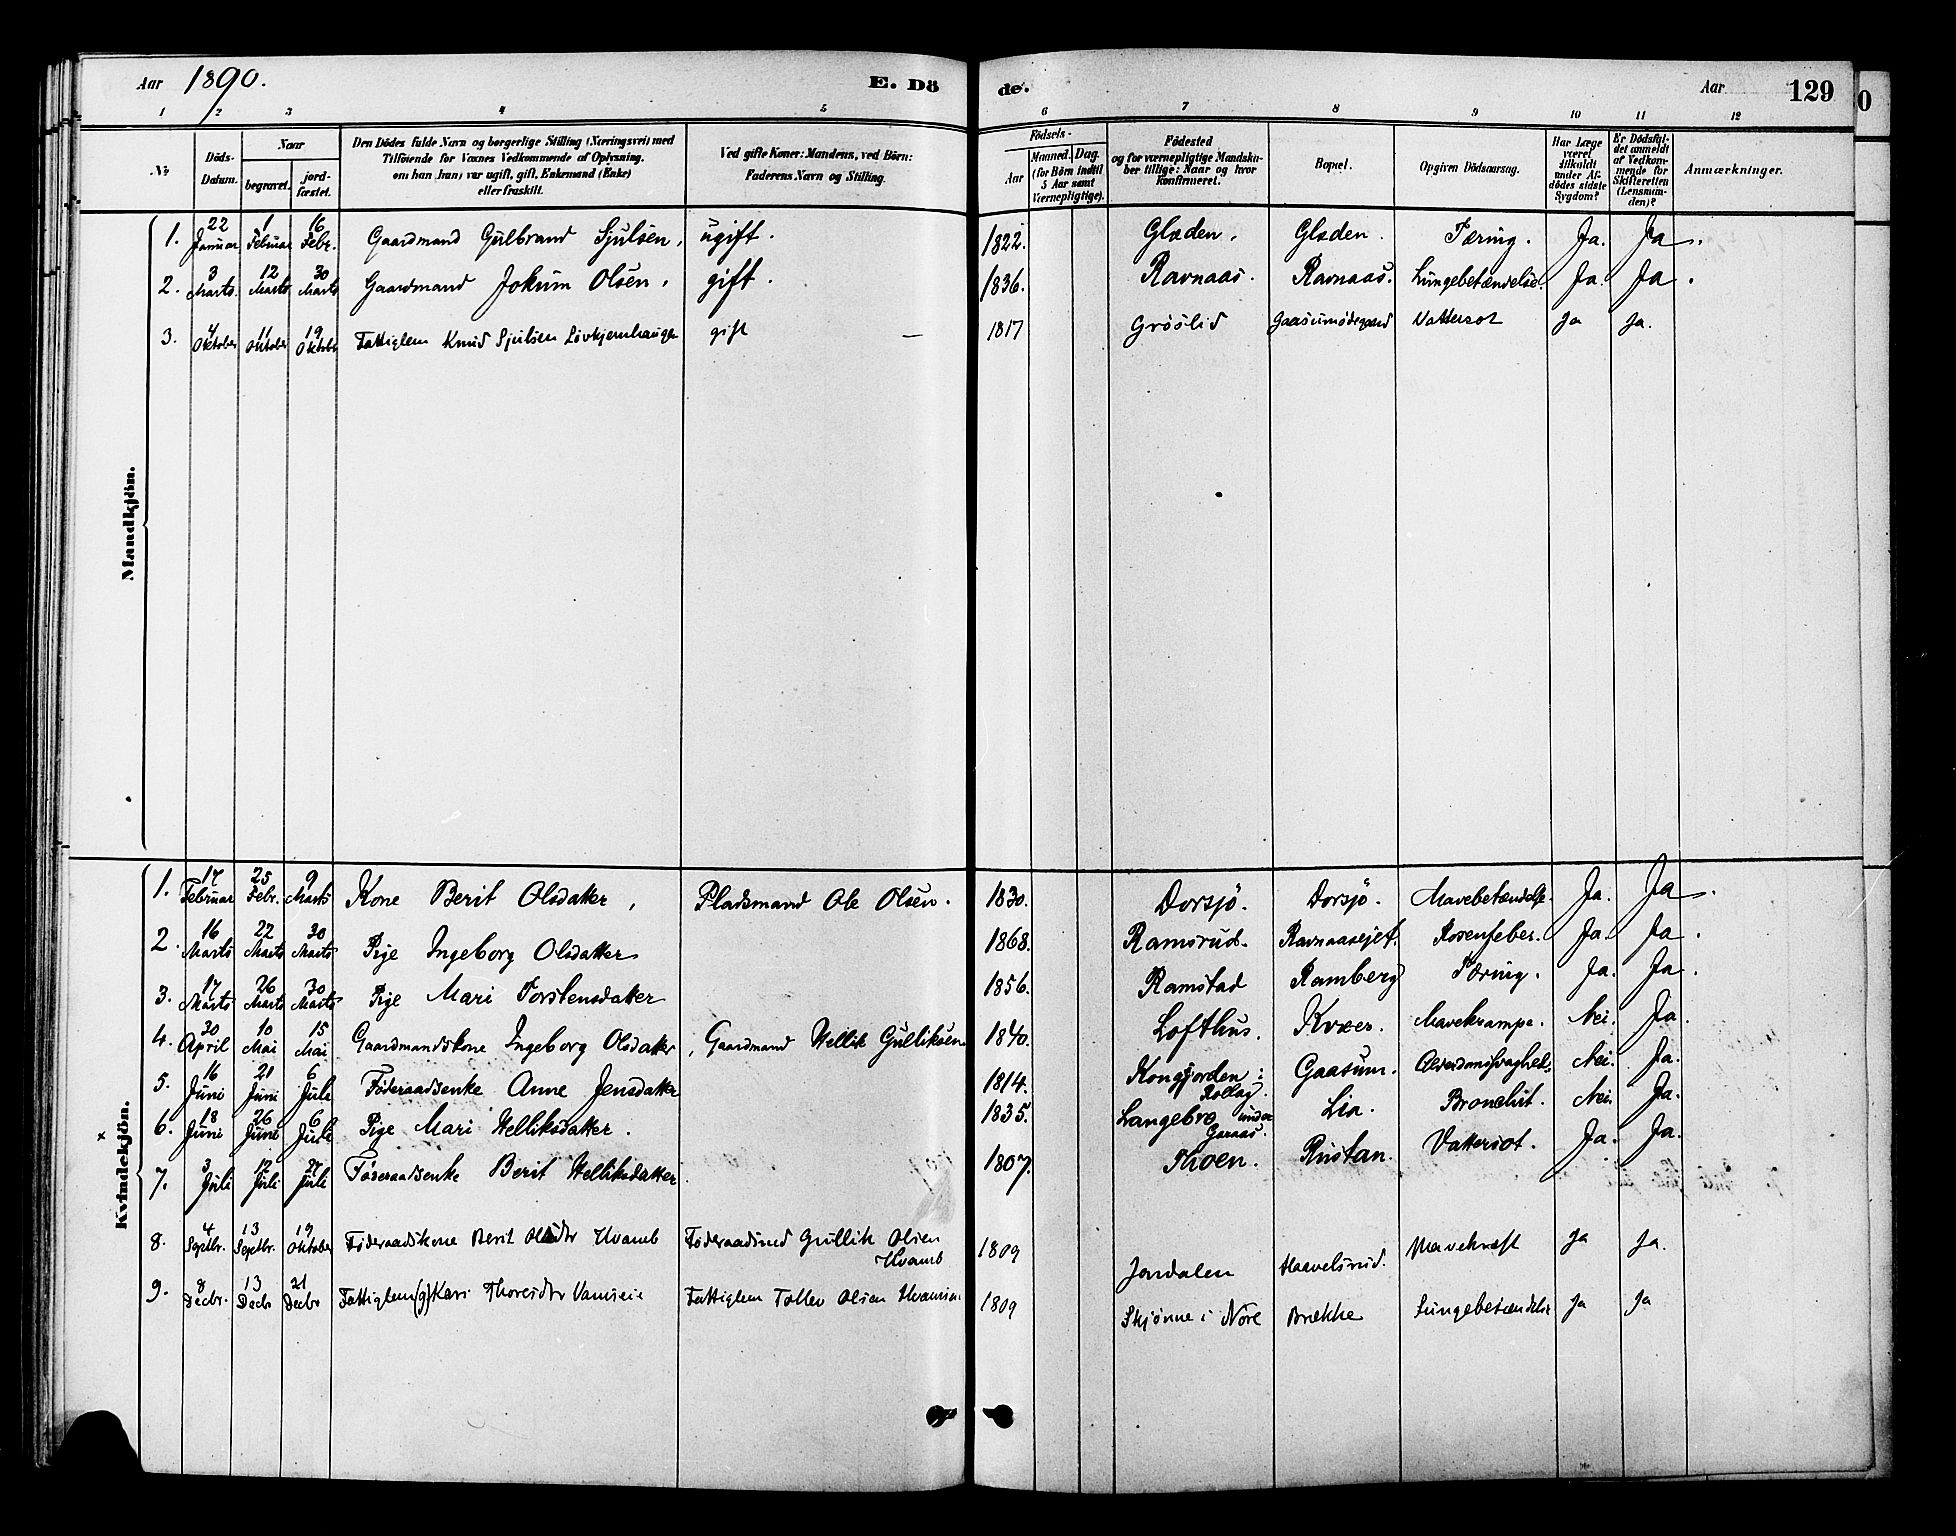 Aar 1890. E. Dö de. Aar 129
1 2 3 4 5 6 7 8 9 10 11 12
No
Döds-Datum.
Naar
begravet.
jord-fæstet.
Den Dödes fulde Navn og borgerlige Stilling (Næringsvei) med
Tilföiende for Voxnes Vedkommende af Oplysning,
om han (hun) var ugift, gift, Enkemand (Enke)
eller fraskilt.
Ved gifte Koner: Mandens, ved Börn:
Faderens Navn og Stilling.
Födsels-
Aar
Maaned. Dag.
(for Börn indtil
5 Aar samt
Værnepligtige).
Födested
og for værnepligtige Mandska-
ber tillige: Naar og hvor
Konfirmeret.
Bopæl.
Opgiven Dödsaarsag.
Har Læge
været
tilkaldt
under Af-
dödes sidste
Sygdom?
Er Dödsfal-
det anmeldt
af Vedkom-
mende for
Skifteretten
(Lensman-
den)?
Anmærkninger.
Mandkjön.
1. 22 Januar 1 Februar 16 Febr. Gaardmand Gulbrand Sjulsen, ugift. 1822. Glæden. Glæden. Tæring. Ja. Ja.
2. 3 Marts. 12 Marts 30 Marts Gaardmand Jokum Olsen, gift. 1836. Ravnaas. Ravnaas. Lungebetændelse. Ja. Ja.
3. 4 Oktober 11 Oktober 19 Oktobr Fattiglem Knud Sjulsen gift — 1817 Grøslid Vattersot Ja Ja.
Kvindekjön.
1. 17 Februar 25 Febr. 9 Marts Kone Berit Olsdatter, Pladsmand Ole Olsen. 1830. Dorsjö. Dorsjö. Mavebetændelse. Ja. Ja.
2. 16 Marts 22 Marts 30 Marts Pige Ingeborg Olsdatter 1868. Ramsrud. Ravnaasejet. Rosenfeber. Ja. Ja.
3. 17 Marts 26 Marts 30 Marts Pige Mari Torstensdatter 1856. Ramstad Ramberg Tæring. Ja. Ja.
4. 30 April 10 Mai 15 Mai Gaardmandskone Ingeborg Olsdatter, Gaardmand Hellik Gulliksen 1840. Lofthus. Kværs. Mavekrampe. Nei. Ja.
5. 16 Juni 21 Juni 6 Juli Föderaadsenke Anne Jensdatter 1814. Kongsjorden i Rollag. Gaasum. Alderdomssvaghed. Nei. Ja.
x 6. 18 Juni 26 Juni 6 Juli Pige Mari Helliksdatter. 1835. Langebro under Garaas. Lia. Bronchit. Nei. Ja.
7. 3 Juli 12 Juli 27 Juli Föderaadsenke Berit Helliksdatter. 1807. Thoen. Rustan. Vattersot. Ja. Ja.
8. 4 Septbr. 13 Septbr. 19 Oktober Föderaadskone Berit Olsdtr Hvamb Föderaadsmd Gullik Olsen
Hvamb 1809 Jondalen Haavelsrud. Mavekræft Ja Ja.
9. 8 Decbr. 13 Decbr 21 Decbr Fattiglem (g) Kari Thoresdtr Fattiglem Tollev Olsen 1809 Skjønne i Nore Brække Lungebetændelse Ja Ja
0